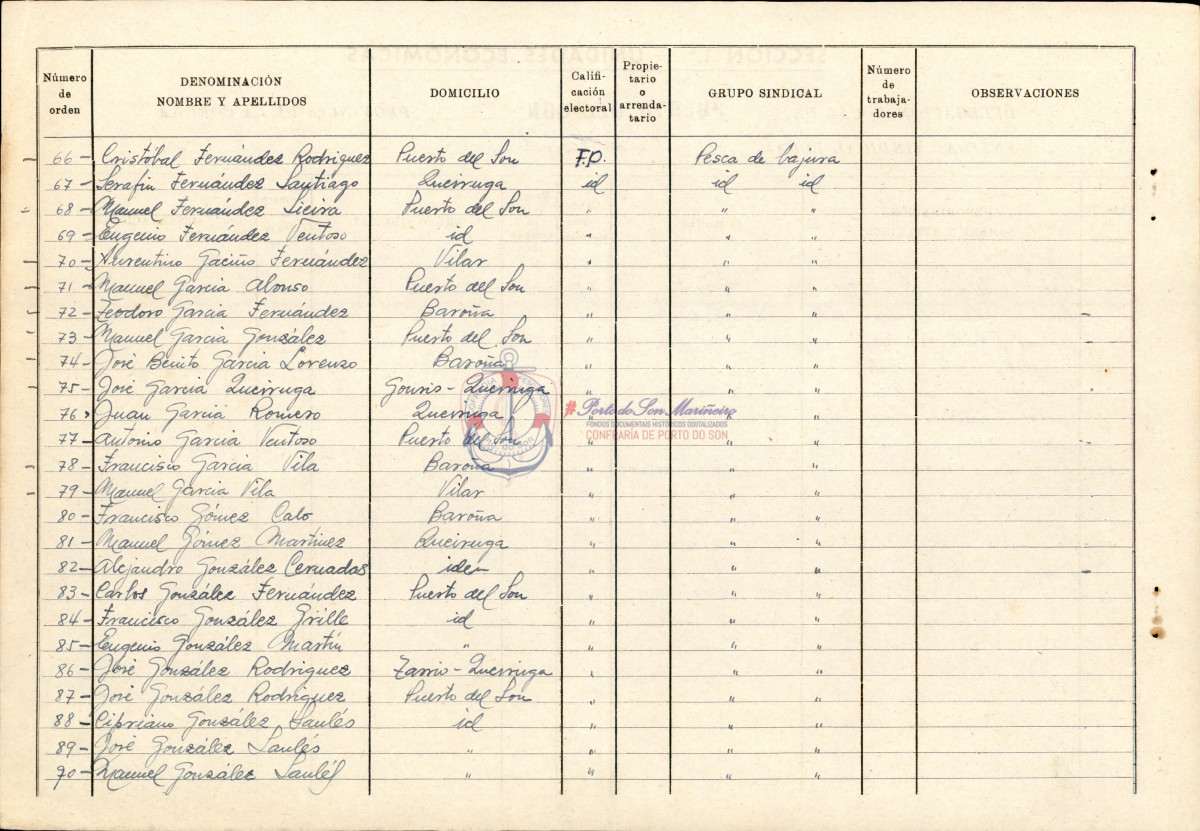 Número de orden | DENOMINACIÓN NOMBRE Y APELLIDOS | DOMICILIO | Califi-cación electoral | Propie-tario o arrenda-tario | GRUPO SINDICAL | Número de trabaja-dores | OBSERVACIONES
66 - Cristóbal Fernández Rodriguez Puerto del Son F.P. Pesca de bajura
67 - Serafin Fernández Santiago Queiruga id id id
68 - Manuel Fernández Sieira Puerto del Son " " "
69 - Eugenio Fernández Ventoso id " " "
70 - Aurentino Gaciño Fernández Vilar " " "
71 - Manuel Garcia Alonso Puerto del Son " " "
72 - Teodoro Garcia Fernández Baroña " " "
73 - Manuel Garcia González Puerto del Son " " "
74 - José Benito Garcia Lorenzo Baroña " " "
75 - José Garcia Queiruga Gouris - Queiruga " " "
76 - Juan Garcia Romero Queiruga " " "
#Porto do Son Mariñeiro
FONDOS DOCUMENTAIS HISTÓRICOS DIGITALIZADOS
CONFRARÍA DE PORTO DO SON
77 - Antonio Garcia Ventoso Puerto del Son " " "
78 - Francisco Garcia Vila Baroña " " "
79 - Manuel Garcia Vila Vilar " " "
80 - Francisco Gómez Calo Baroña " " "
81 - Manuel Gómez Martinez Queiruga " " "
82 - Alejandro González Cernadas iden " " "
83 - Carlos González Fernández Puerto del Son " " "
84 - Francisco González Grille id " " "
85 - Eugenio González Martín " " " "
86 - José González Rodriguez Zarrio - Queiruga " " "
87 - José González Rodriguez Puerto del Son " " "
88 - Cipriano González Saulés id " " "
89 - José González Saulés " " " "
90 - Manuel González Saulés " " " "